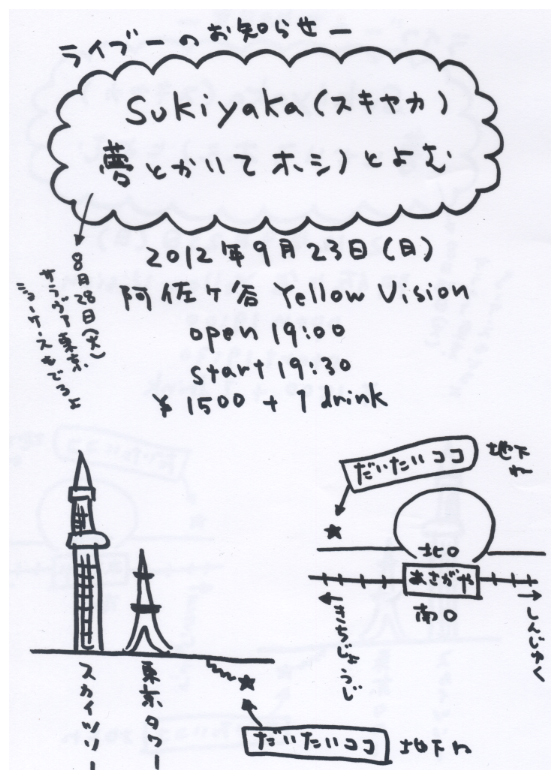 ライブーのお知らせー
Sukiyaka(スキヤカ)
夢とかいてホシノとよむ
8月28日(火)
サラヴァ東京
ショーケースもでるよ
2012年9月23日(日)
阿佐ヶ谷 Yellow Vision
open 19:00
start 19:30
¥1500+1drink
だいたいココ
地下ね
北口
あさがや
南口
きちじょうじ
しんじゅく
スカイツリー
東京タワー
だいたいココ
地下ね